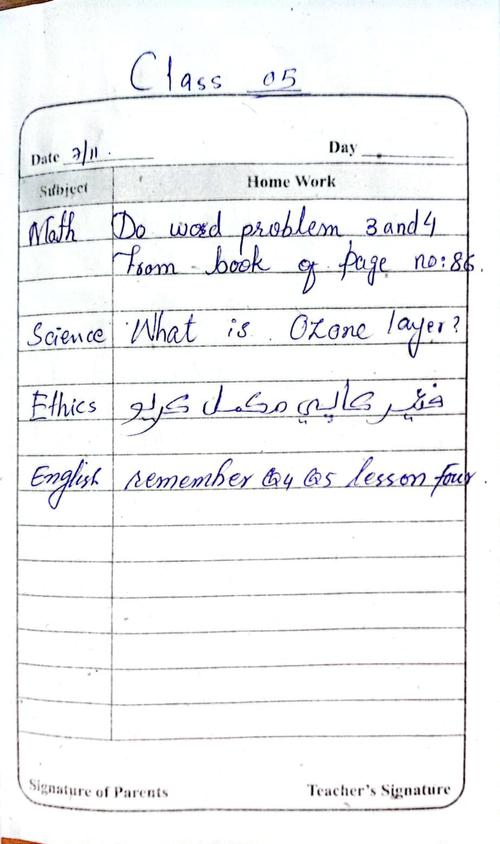 Class 05
Date 7/11. Day
Subject Home Work
Math Do word problem 3 and 4
from book of page no:86.
Science What is Ozone layer?
Ethics فئير كاپي مكمل كريو
English remember Q4 Q5 lesson four.
Signature of Parents Teacher's Signature